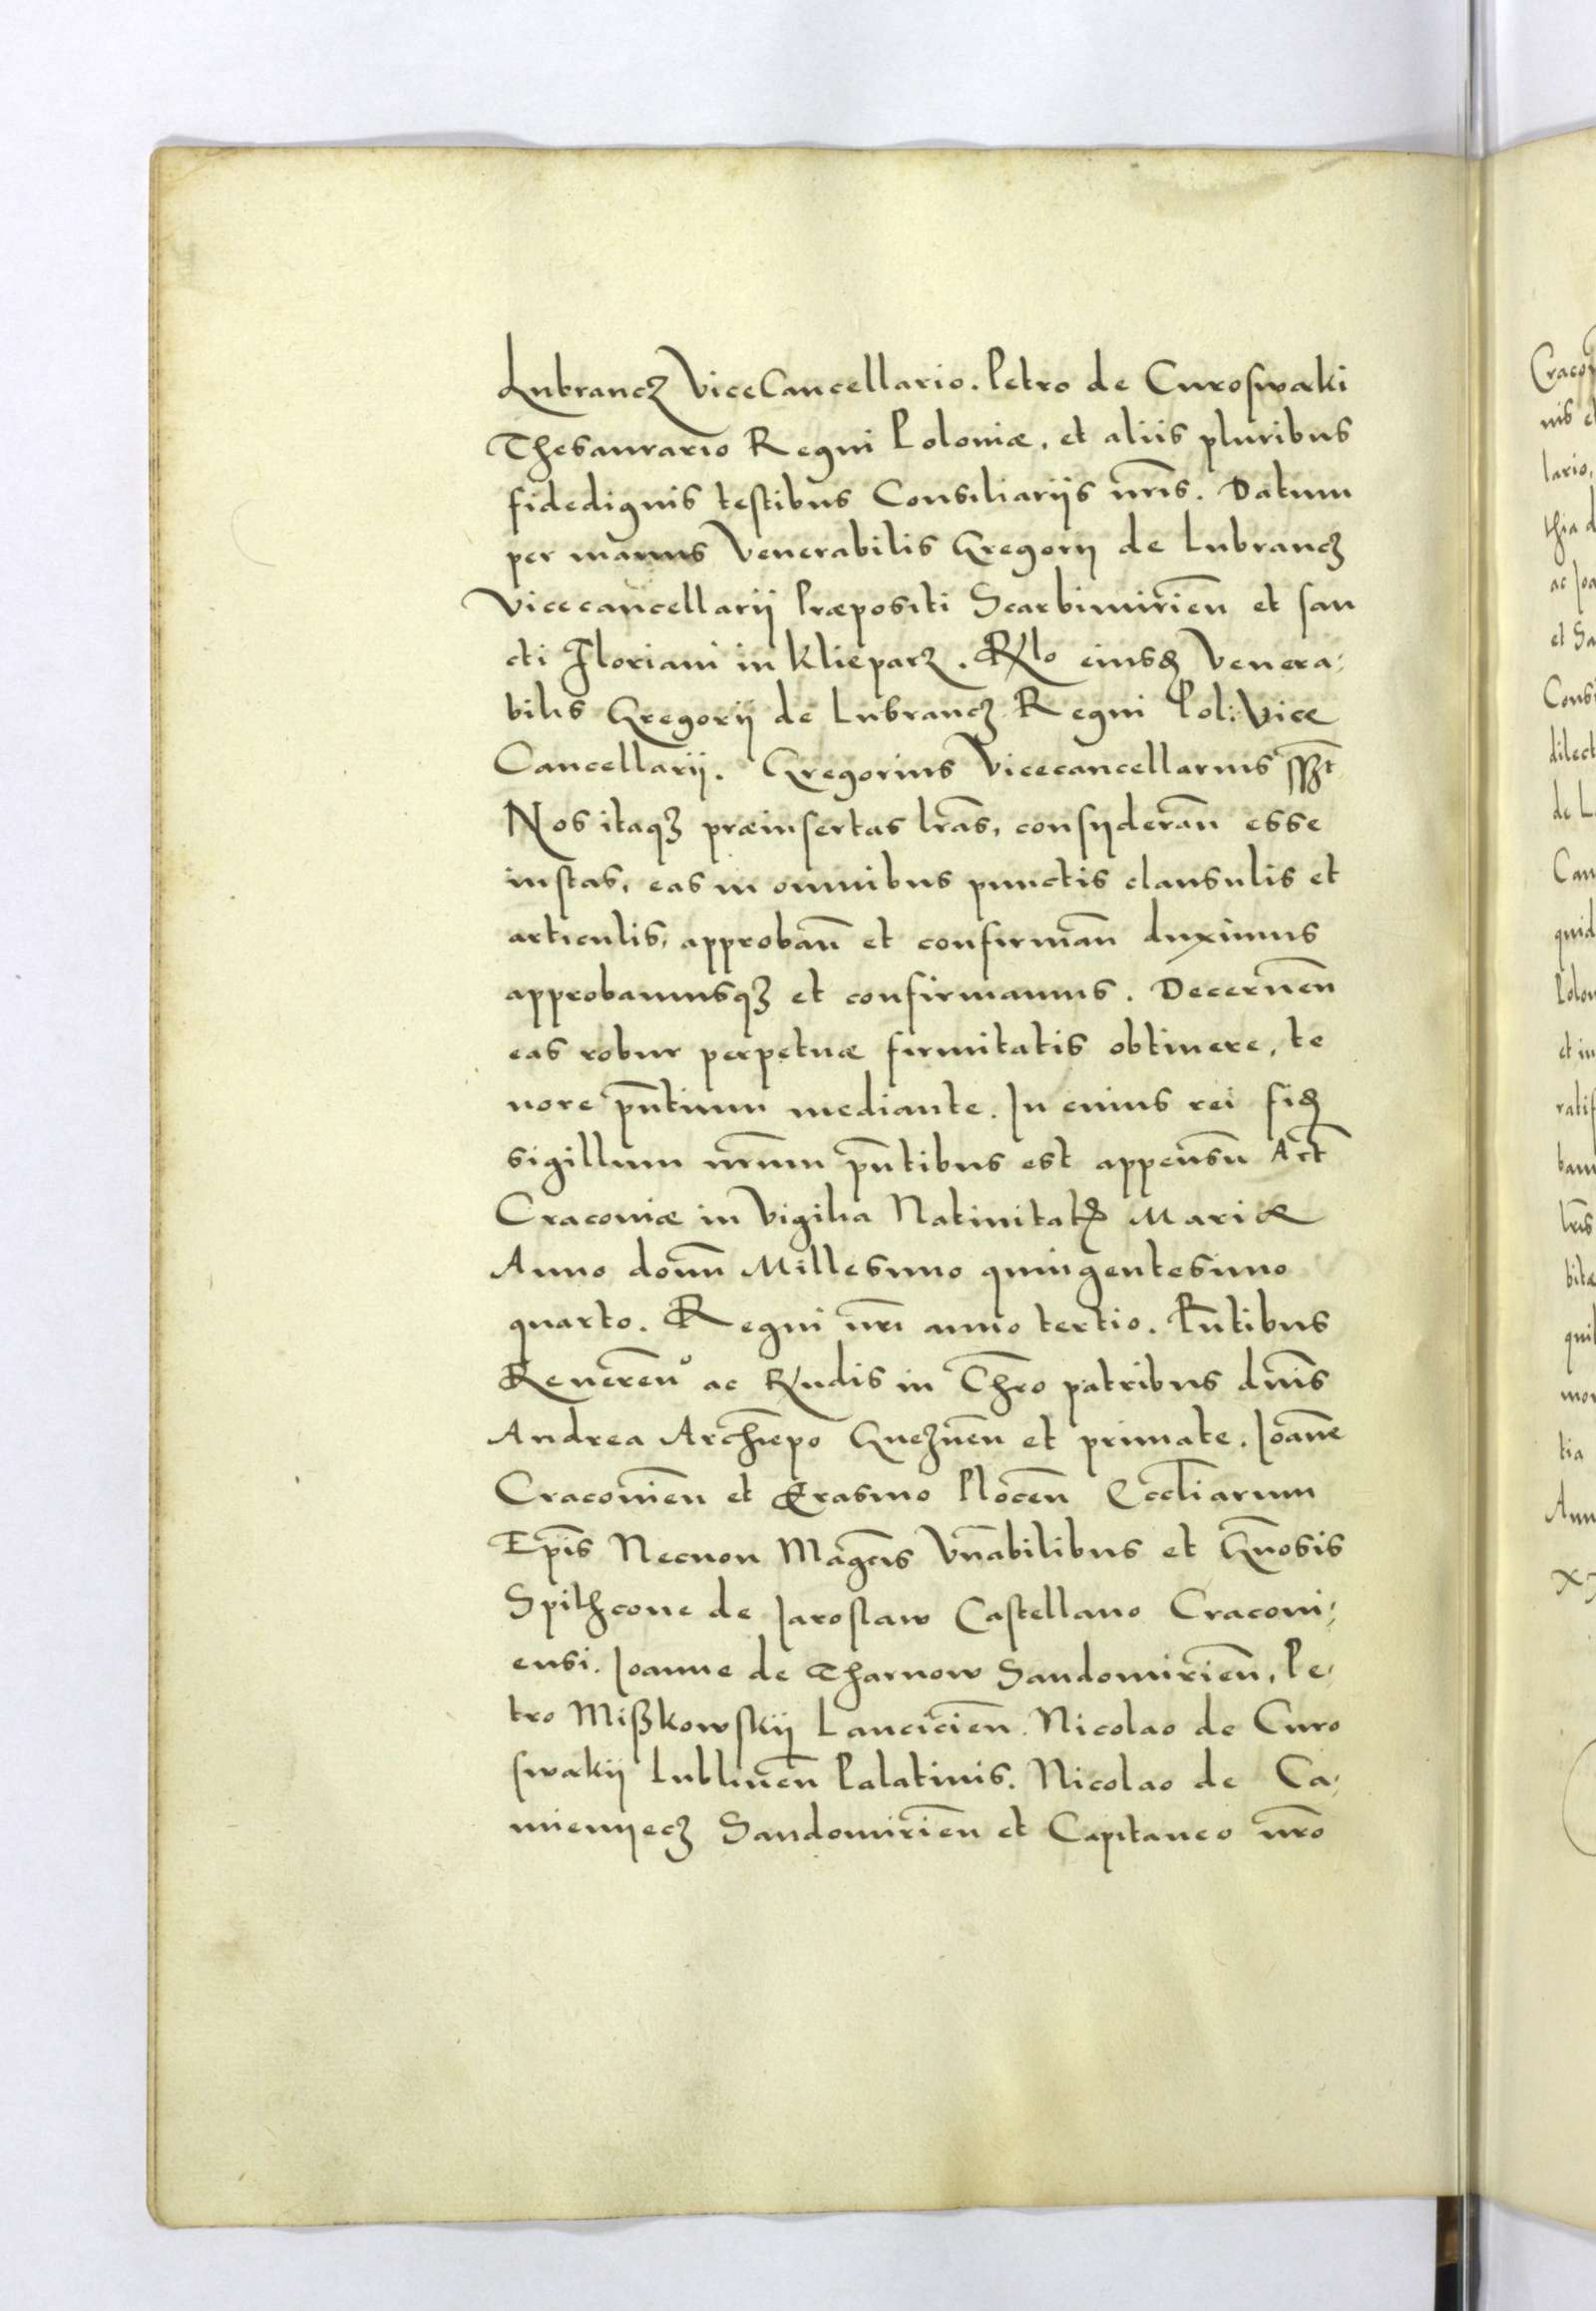 Lubrancz ViceCancellario. Petro de Curoswaki
Thesaurario Regni Poloniæ, et aliis pluribus
fidedignis testibus Consiliariis nr̃is. Datum
per manus Venerabilis Gregorij de Lubrancz
Vicecancellarij Præpositi Scarbimirien̄ et san
cti Floriani in Klieparz. Rlo eiusd Venera,
bilis Gregorij de Lubrancz Regni Pol: Vice
Cancellarij. Gregorius Vicecancellarius sszt
Nos itaqz præinsertas lr̃as, consyderan̄ esse
iustas, eas in omnibus punctis clausulis et
articulis, approban̄ et confirman̄ duximus
approbamusqz et confirmamus. Decernen̄
eas robur perpetuæ firmitatis obtinere, te
nore pñtium mediante. In cuius rei fid
sigillum nr̃um pñtibus est appensũ Act̃
Cracoviæ in Vigilia Nativitatis Mariæ
Anno domñ Millesimo quingentesimo
quarto. Regni nr̃i anno tertio. Pñtibus
Reveren̄o ac Rn̄dis in Chr̃o patribus dñis
Andrea Archiep̃o Gneznen̄ et primate. Joan̄e
Cracovien̄ et Erasmo Plocen̄ Eccl̃iarum
Ep̃is Necnon Mag̃cis Vñabilibus et Gñosis
Spithcone de Jaroslaw Castellano Cracovi,
ensi. Joanne de Tharnow Sandomirien̄, Pe,
tro Mißkowskij Lancicien̄. Nicolao de Curo
swakij Lublinen̄ Palatinis. Nicolao de Ca,
mienyecz Sandomirien̄ et Capitaneo nr̃o
Craco
nis et
lario,
thia d
ac Joa
et Sa
Consi
dilect
de L
Can
quid
Polon
et in
ratif
bam
lr̃is
bitæ
qui
mor
tia
Ann